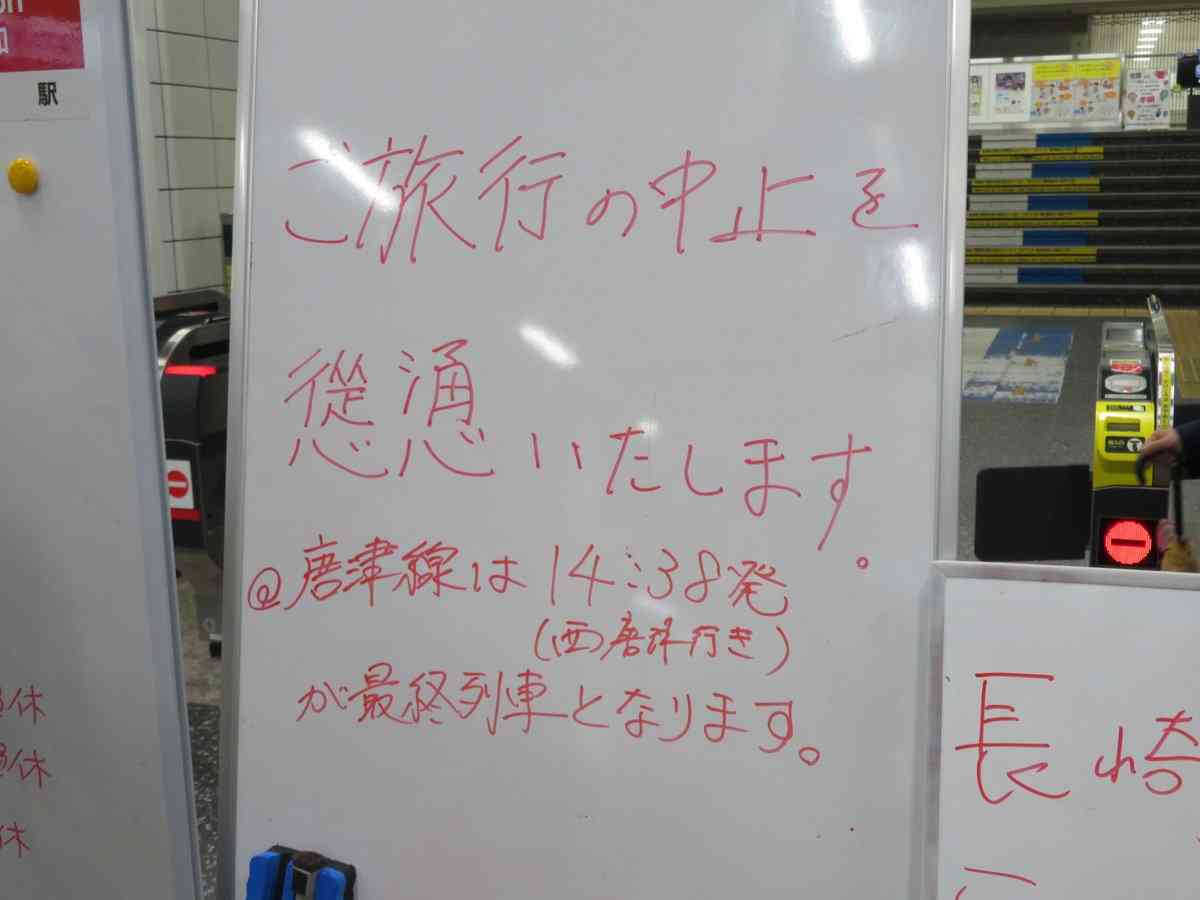 駅
ご旅行の中止を
慫慂いたします。
@唐津線は14:38発
(西唐津行き)
が最終列車となります。
休
休
休
長崎